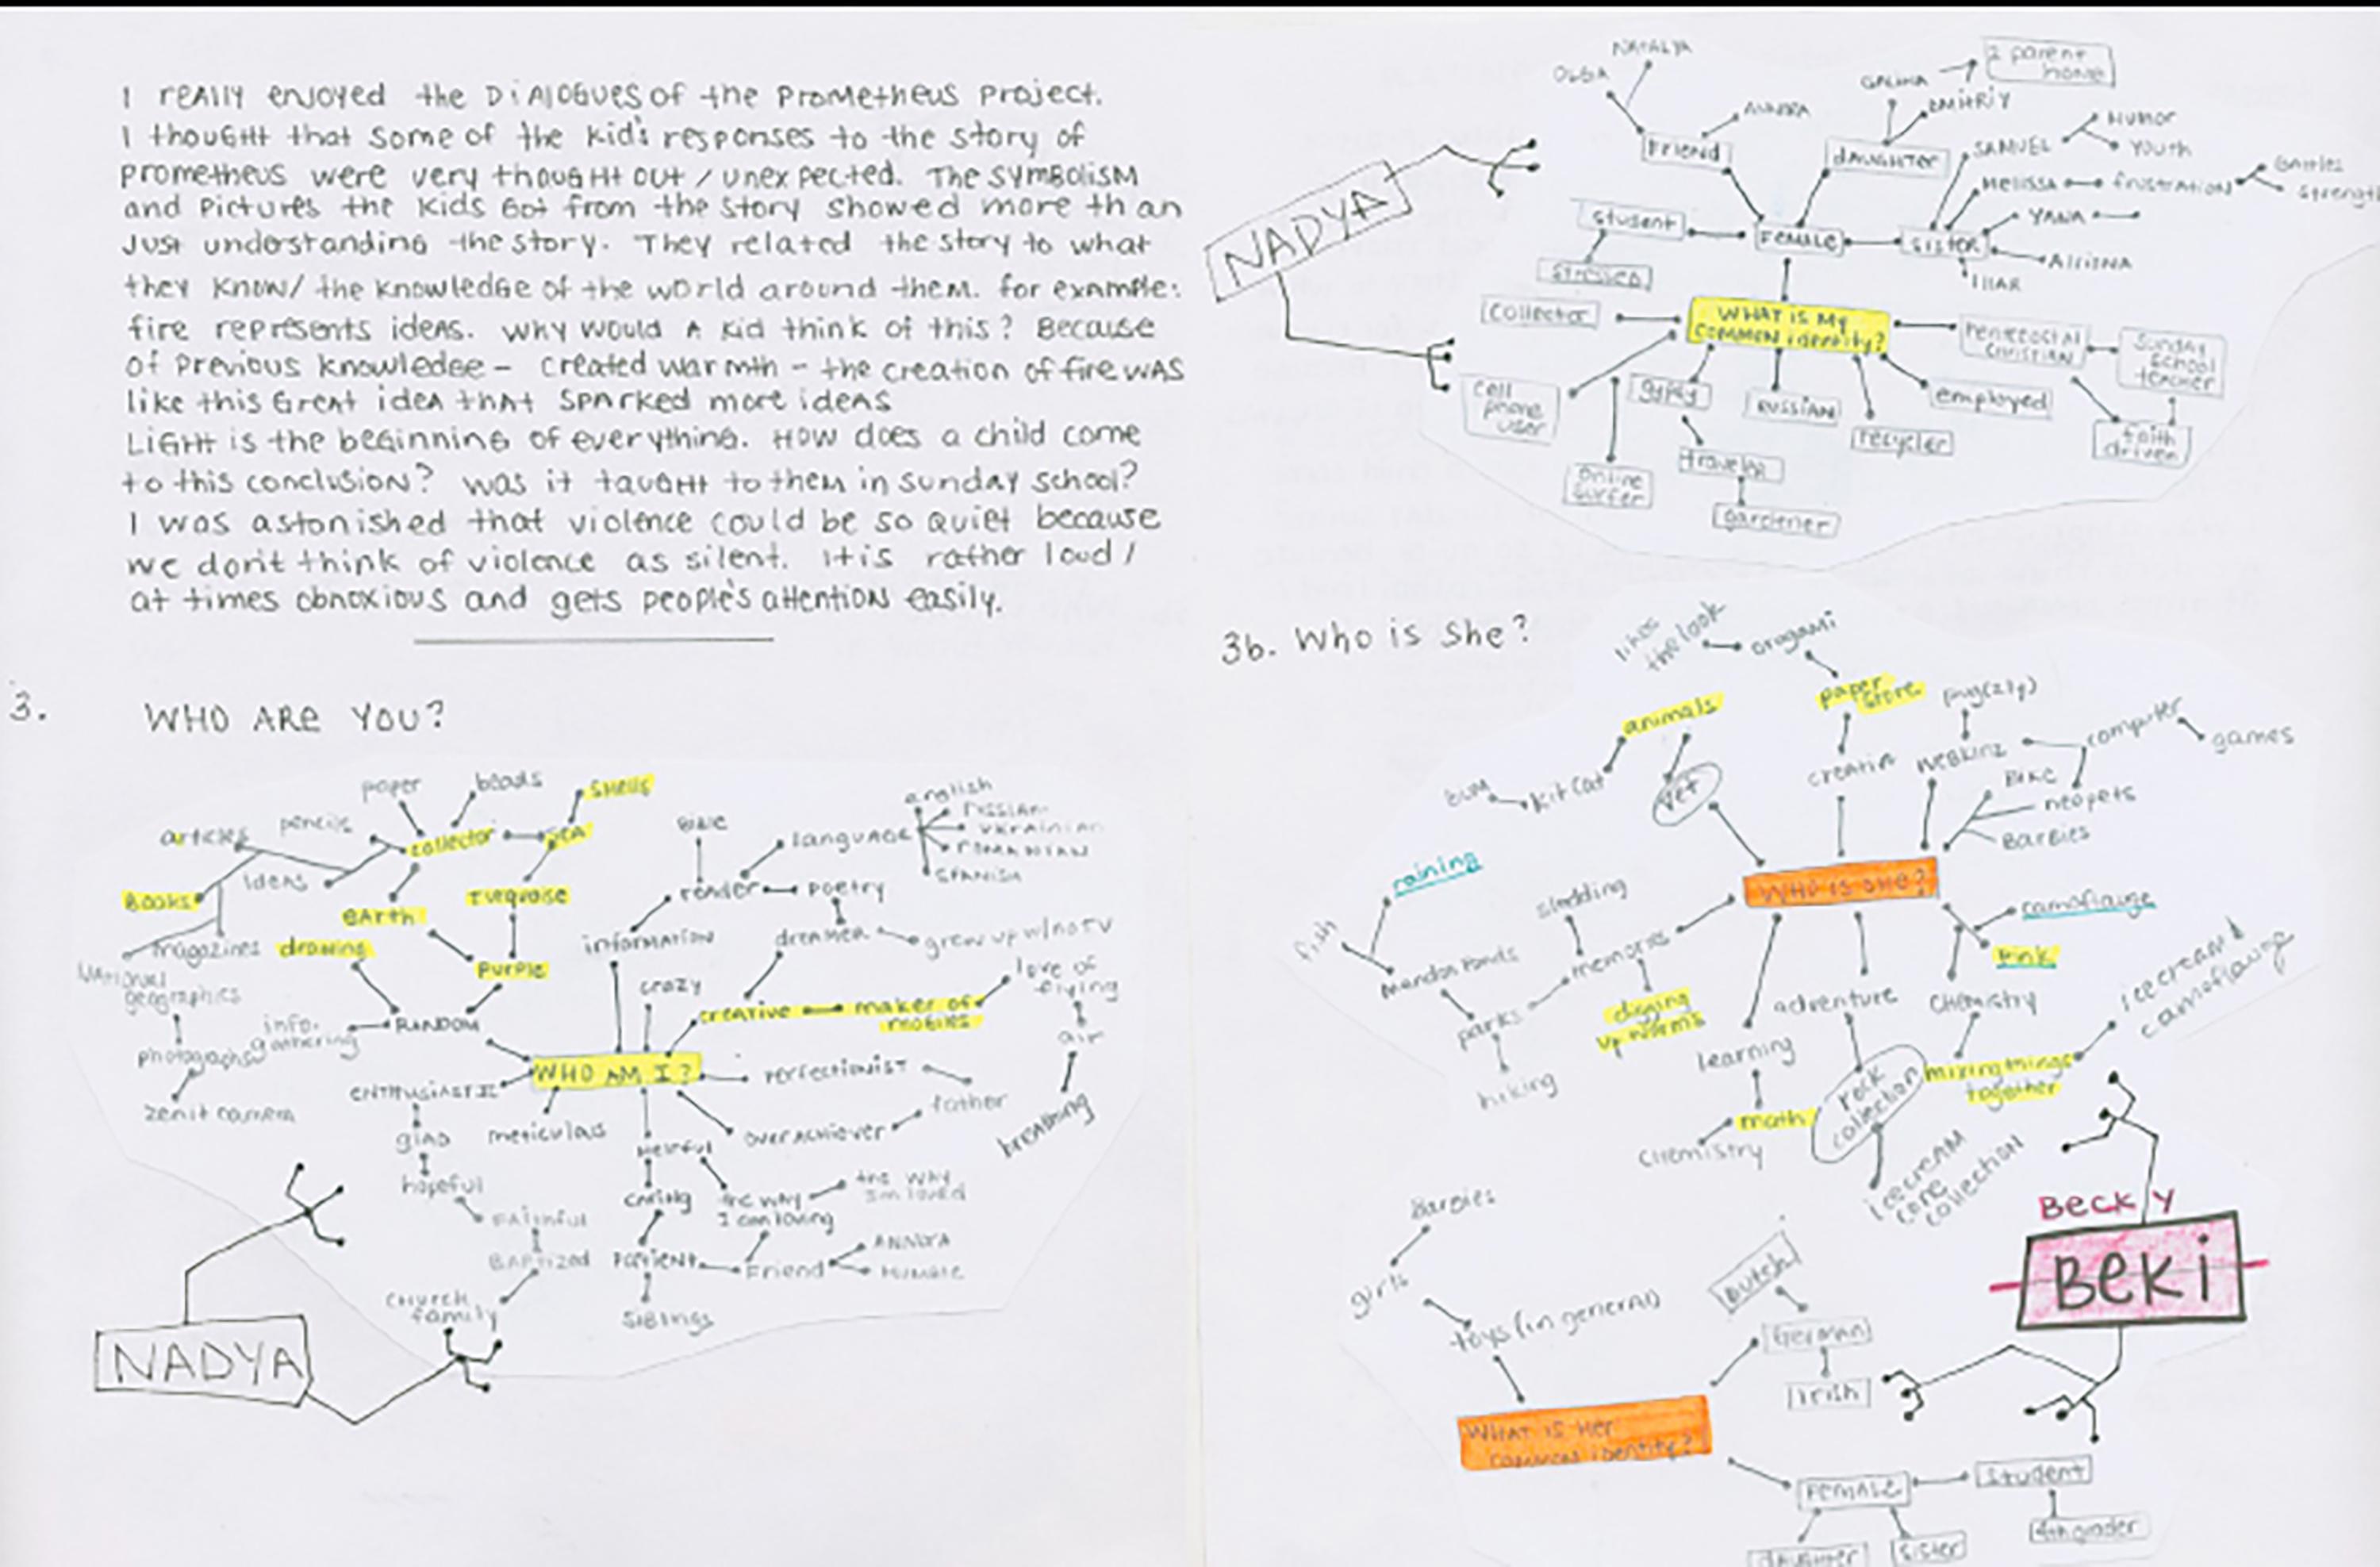 I REALLY ENJOYED the DIALOGUES of the PROMETHEUS PROJECT.
I thought that some of the kid's responses to the story of
prometheus were very thought out / unexpected. The SYMBOLISM
and Pictures the kids Got from the story showed more than
Just understanding the story. They related the story to what
they know / the knowledge of the world around them. for example:
fire represents ideas. Why would a kid think of this? Because
of Previous knowledge - created warmth - the creation of fire was
like this Great idea that sparked more ideas
LIGHT is the beginning of everything. How does a child come
to this conclusion? was it taught to them in sunday school?
I was astonished that violence could be so quiet because
we don't think of violence as silent. It is rather loud /
at times obnoxious and gets people's attention easily.
3. WHO ARE YOU?
paper
beads
shells
articles
pencils
collector
sea
Books
Ideas
Earth
Turquoise
magazines
drawing
Purple
National geographics
photographs
zenit camera
info. gathering
RANDOM
WHO AM I?
Bible
language
english
russian
ukrainian
romanian
spanish
reader
poetry
information
dreamer
grew up w/no TV
crazy
creative
maker of mobiles
love of flying
air
breathing
perfectionist
father
overachiever
enthusiastic
glad
hopeful
faithful
Baptized
church family
meticulous
Helpful
caring
the way I am loving
the way I'm loved
Patient
Friend
siblings
NADYA
NADYA
NATALYA
OLGA
Friend
GALINA
DMITRIY
2 parent home
daughter
SAMUEL
Humor
Youth
Melissa
frustration
strength
YANA
student
Female
sister
stressed
collector
WHAT IS MY COMMON identity?
Pentecostal Christian
Sunday School teacher
faith driven
cell phone user
gypsy
RUSSIAN
recycler
employed
online surfer
traveler
gardener
3b. Who is She?
likes the look
origami
paper store
animals
kit cat
vet
webkinz
computer
games
Bike
neopets
Barbies
WHO IS SHE?
raining
fish
sledding
memories
parks
hiking
digging up worms
learning
math
chemistry
adventure
rock collection
icecream cone collection
camoflauge
Pink
CHEMISTRY
mixing things together
icecream
camoflauge
BECKY
Beki
Barbies
girls
toys (in general)
Dutch
German
Irish
WHAT IS HER common identity?
FEMALE
student
4th grader
daughter
sister